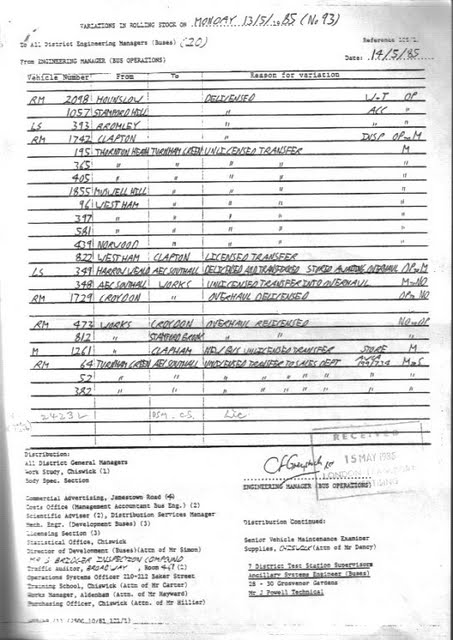 VARIATIONS IN ROLLING STOCK ON MONDAY 13/5/1985 (No 93)
To All District Engineering Managers (Buses) (20)
Reference 125/1.
From ENGINEERING MANAGER (BUS OPERATIONS)
Date: 14/5/85
Vehicle Number From To Reason for variation
RM 2098 HOUNSLOW DELICENSED W-T OP
1057 STAMFORD HILL " ACC "
LS 393 BROMLEY "
RM 1742 CLAPTON " INSP OP to M
195 THORNTON HEATH TURNHAM GREEN UNLICENSED TRANSFER M
365 " " " " "
405 " " " " "
1855 MUSWELL HILL " " " "
96 WEST HAM " " " "
397 " " " " "
581 " " " " "
439 NORWOOD " " " "
822 WEST HAM CLAPTON LICENSED TRANSFER
LS 349 HARROW WEALD AEC SOUTHALL DELICENSED AND TRANSFERRED STORED AWAITING OVERHAUL OP to M
348 AEC SOUTHALL WORKS UNLICENSED TRANSFER INTO OVERHAUL M to NO
RM 1729 CROYDON " OVERHAUL DELICENSED OP to NO
RM 473 WORKS CROYDON OVERHAUL RELICENSED NO to OP
812 " STAMFORD BROOK " " "
M 1261 " CLAPHAM NEW BUS UNLICENSED TRANSFER STORE M
RM 64 TURNHAM GREEN AEC SOUTHALL UNLICENSED TRANSFER TO SALES DEPT M to S
52 " " " " " " "
382 " " " " " " "
2423L Lic
Distribution:
All District General Managers
Work Study, Chiswick (1)
Body Spec. Section
RECEIVED
15 MAY 1985
LONDON TRANSPORT
ENGINEERING MANAGER (BUS OPERATIONS)
Commercial Advertising, Jamestown Road (4)
Costs Office (Management Accountant Bus Eng.) (2)
Scientific Adviser (2), Distribution Services Manager
Mech. Engr. (Development Buses) (3)
Licensing Section (3)
Statistical Office, Chiswick
Director of Development (Buses)(Attn of Mr Simon)
INSPECTION COMPOUND
Traffic Auditor, BROADWAY, Room
Operations Systems Officer 210-212 Baker Street
Training School, Chiswick (Attn of Mr Carter)
Works Manager, Aldenham (Attn. of Mr Heyward)
Purchasing Officer, Chiswick (Attn. of Mr Hillier)
Distribution Continued:
Senior Vehicle Maintenance Examiner
Supplies, CHISWICK (Attn of Mr Dency)
7 District Test Station Supervisors
Ancillary Systems Engineer (Buses)
28 - 30 Grosvenor Gardens
Mr J Powell Technical